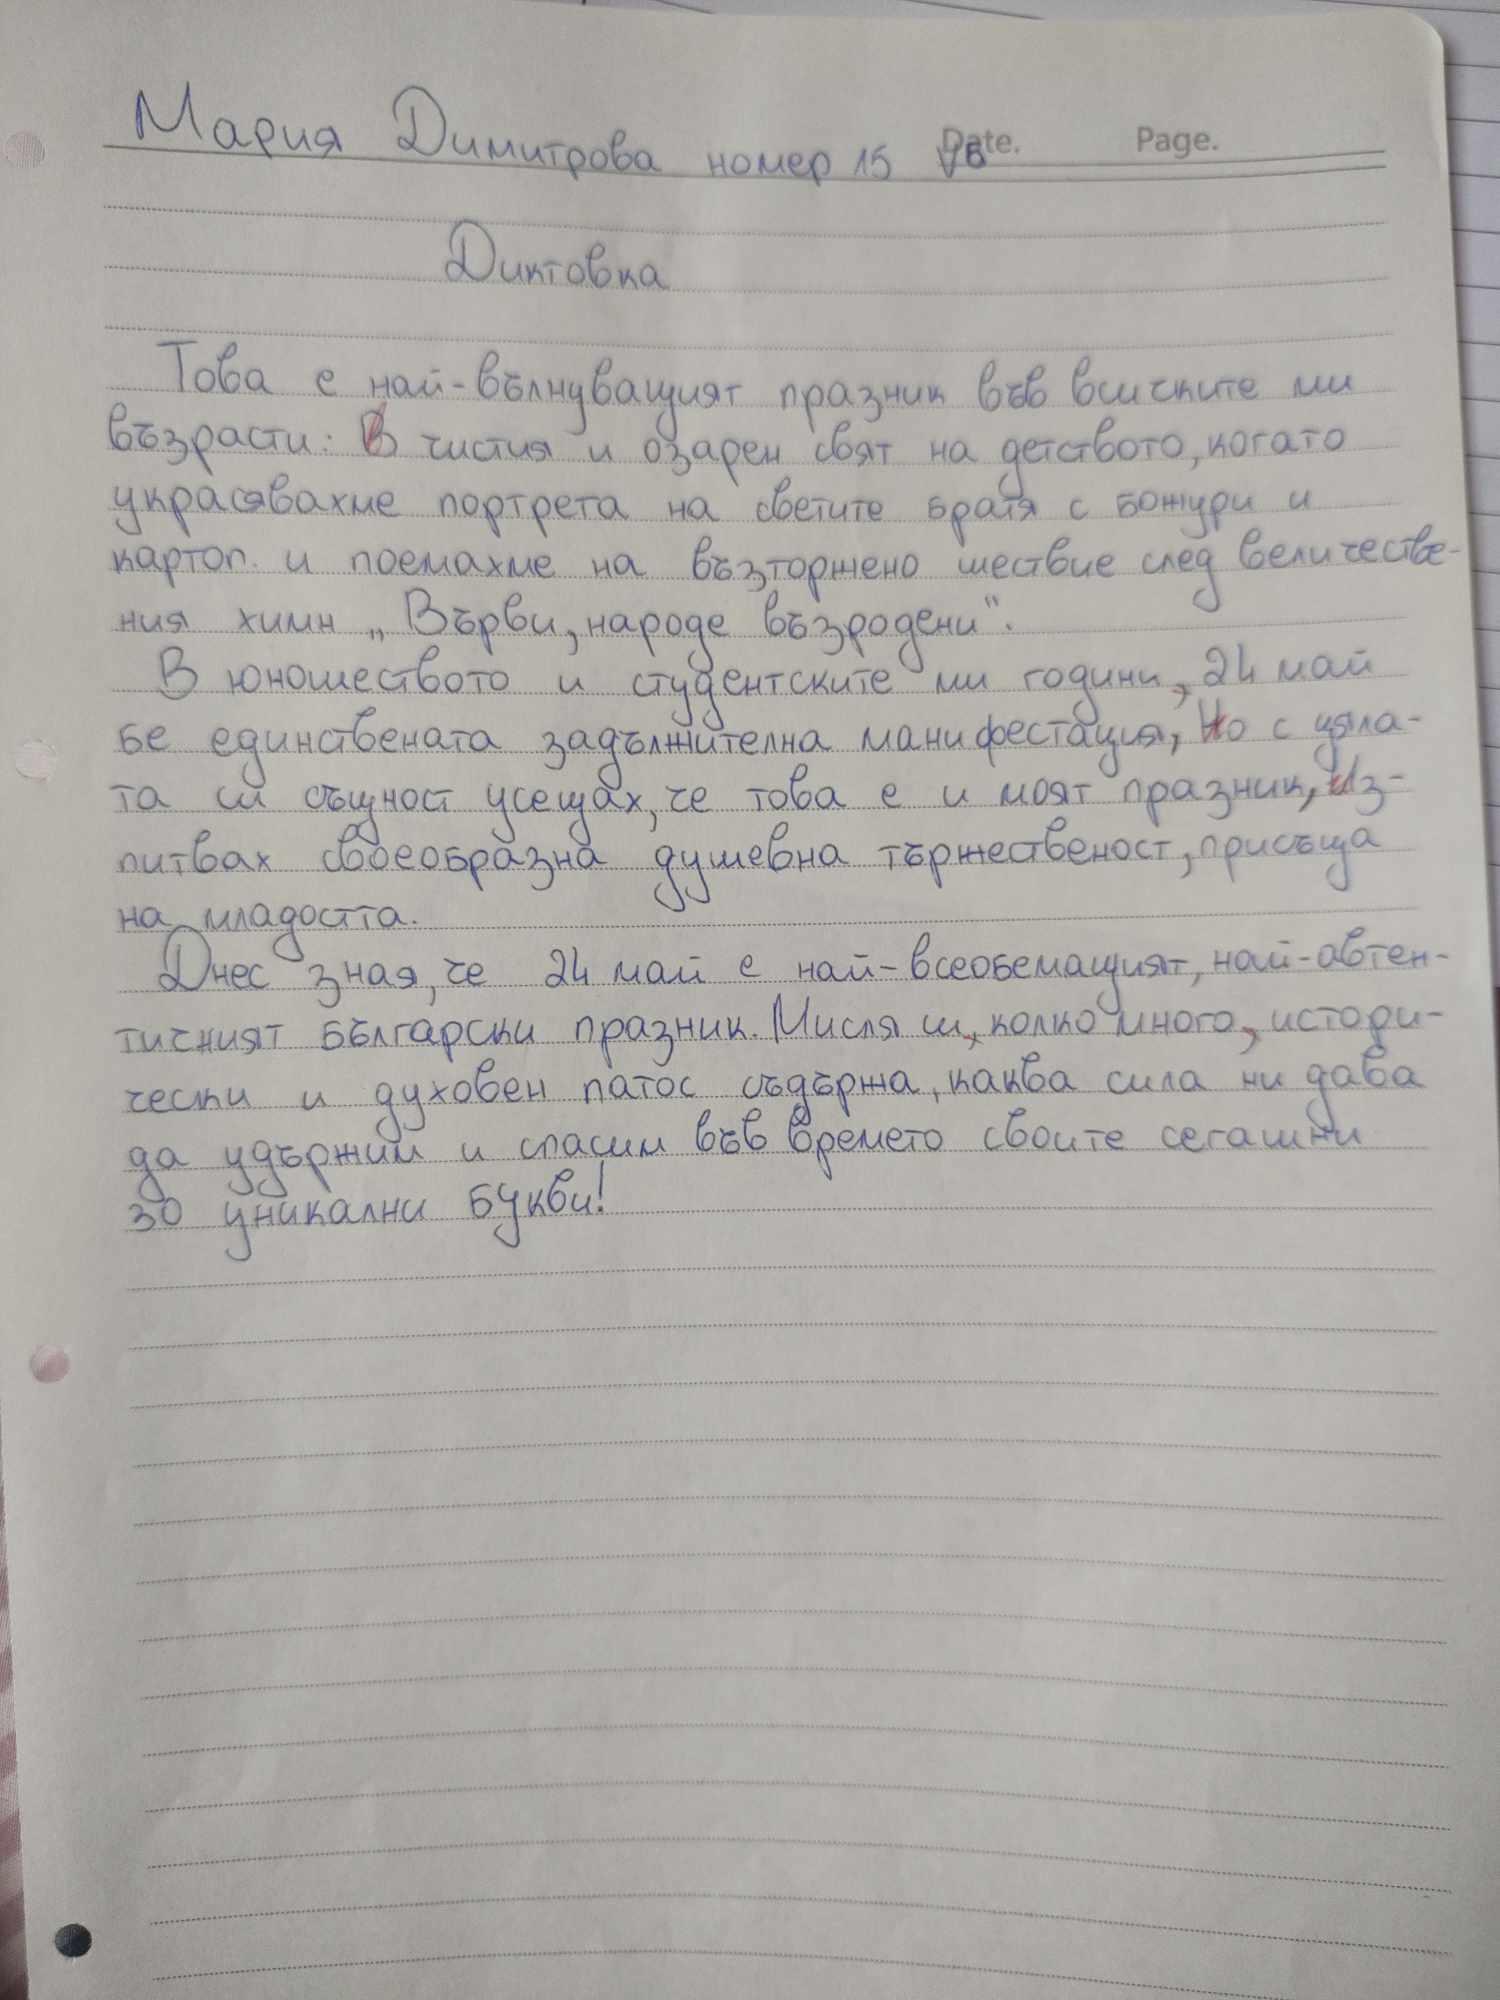 Мария Димитрова номер 15 Vв Date. Page.
Диктовка
Това е най-вълнуващият празник във всичките ми
възрасти: В чистия и озарен свят на детството, когато
украсявахме портрета на светите братя с божури и
картоп. и поемахме на възторжено шествие след величестве-
ния химн „Върви, народе възродени".
В юношеството и студентските ми години, 24 май
бе единствената задължителна манифестация, Но с цяла-
та си същност усещах, че това е и моят празник, Из-
питвах своеобразна душевна тържественост, присъща
на младостта.
Днес зная, че 24 май е най-всеобемащият, най-автен-
тичният български празник. Мисля си, колко много, истори-
чески и духовен патос съдържа, каква сила ни дава
да удържим и спасим във времето своите сегашни
30 уникални букви!